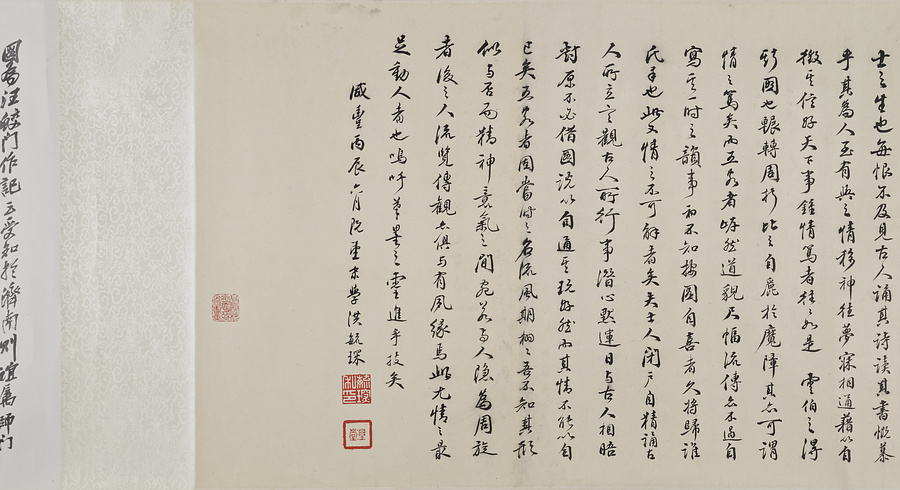 士之生也每恨不及見古人誦其詩讀其書慨慕
乎其為人至有與之情移神往夢寐相通藉以自
徵其信好天下事鍾情篤者往往如是 雲伯之得
斯圖也輾轉周折比之自麗於魔障其亦可謂
情之篤矣而五家者岸然道貌尺幅流傳亦不過自
寫其一時之韻事初不知按圖自喜者久將歸誰
氏手也此又情之不可解者矣夫士人閉戶自精誦古
人所立言觀古人所行事潛心默運日與古人相晤
對原不必借圖說以自通其玩好然而其情不能以自
已矣五家者固當時之名流風期栩栩吾不知其形
似與否而精神意氣之間宛若與人隱為周旋
者後之人流覽傳觀亦俱與有夙緣焉此尤情之最
足動人者也嗚呼筆墨之靈進乎技矣
咸豐丙辰六月阮臺末學洪毓琛
圖為汪 門作記云受知於濟南則誼屬師門